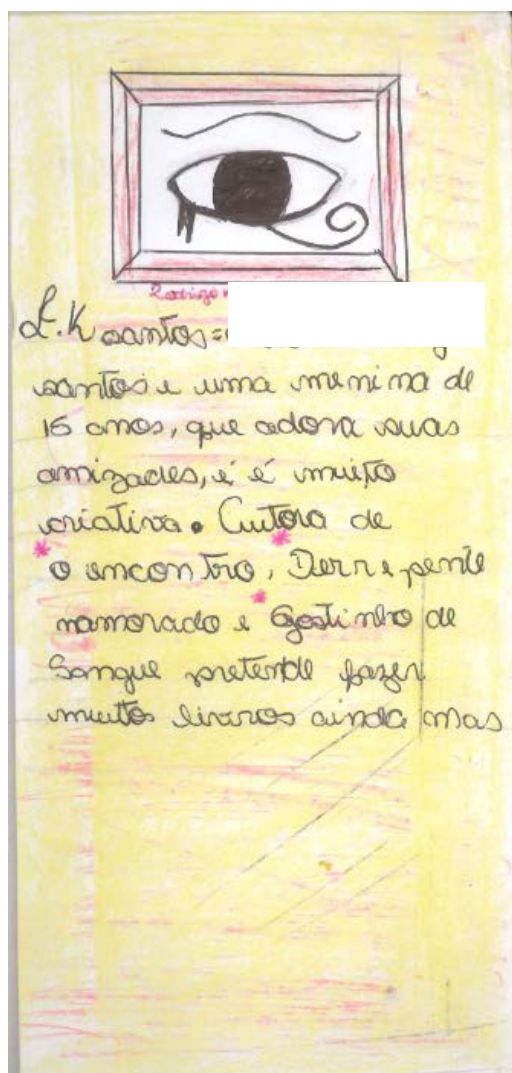 Rodrigo
L.K santos=
santos e uma menina de
16 anos, que adora suas
amizades, é é muito
criativa. Cutora de
o encontro, Derrepente
namorado e Gostinho de
Sangue pretende fazer
muitos livros ainda mas